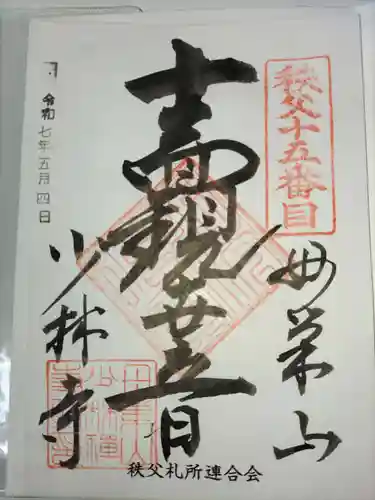 秩父十五番目
母巣山
十一面観世音
少林寺
令和七年五月四日
秩父札所連合会